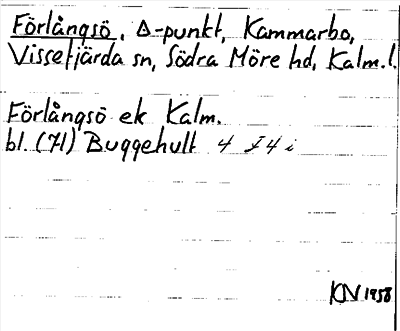 Förlångsö, Δ-punkt, Kammarbo,
Vissefjärda sn, Södra Möre hd, Kalm. l.
Förlångsö ek Kalm.
bl. (71) Buggehult 4 F 4 i
KN 1958